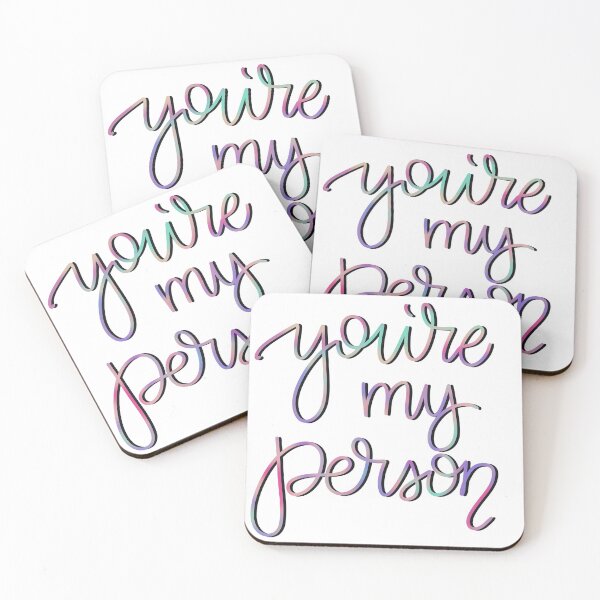 you're
my
you're
my
person
you're
my
pers
you're
my
person